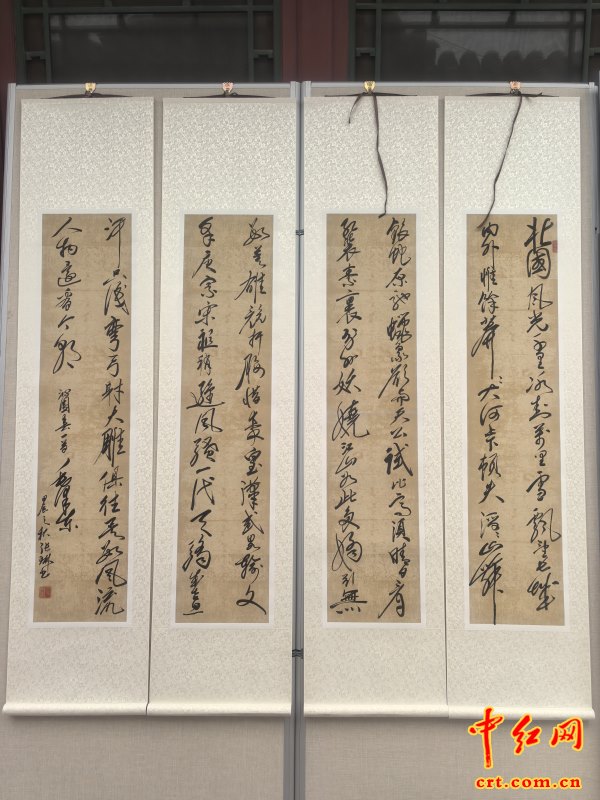 北國風光千里冰封萬里雪飄望長城
內外惟餘莽莽大河上下頓失滔滔山舞
銀蛇原馳蠟象欲與天公試比高須晴日看
紅裝素裹分外妖嬈江山如此多嬌引無
數英雄競折腰惜秦皇漢武略輸文
采唐宗宋祖稍遜風騷一代天驕成吉思
汗只識彎弓射大雕俱往矣數風流
人物還看今朝 沁園春一首 毛澤東
中红网
crt.com.cn